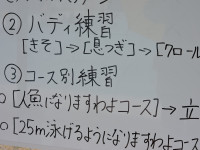 ② バディ練習
[きそ]→[息つぎ]→[クロール
③ コース別練習
○[人魚になりますわよコース]→立
○[25m泳げるようになりますわよコース